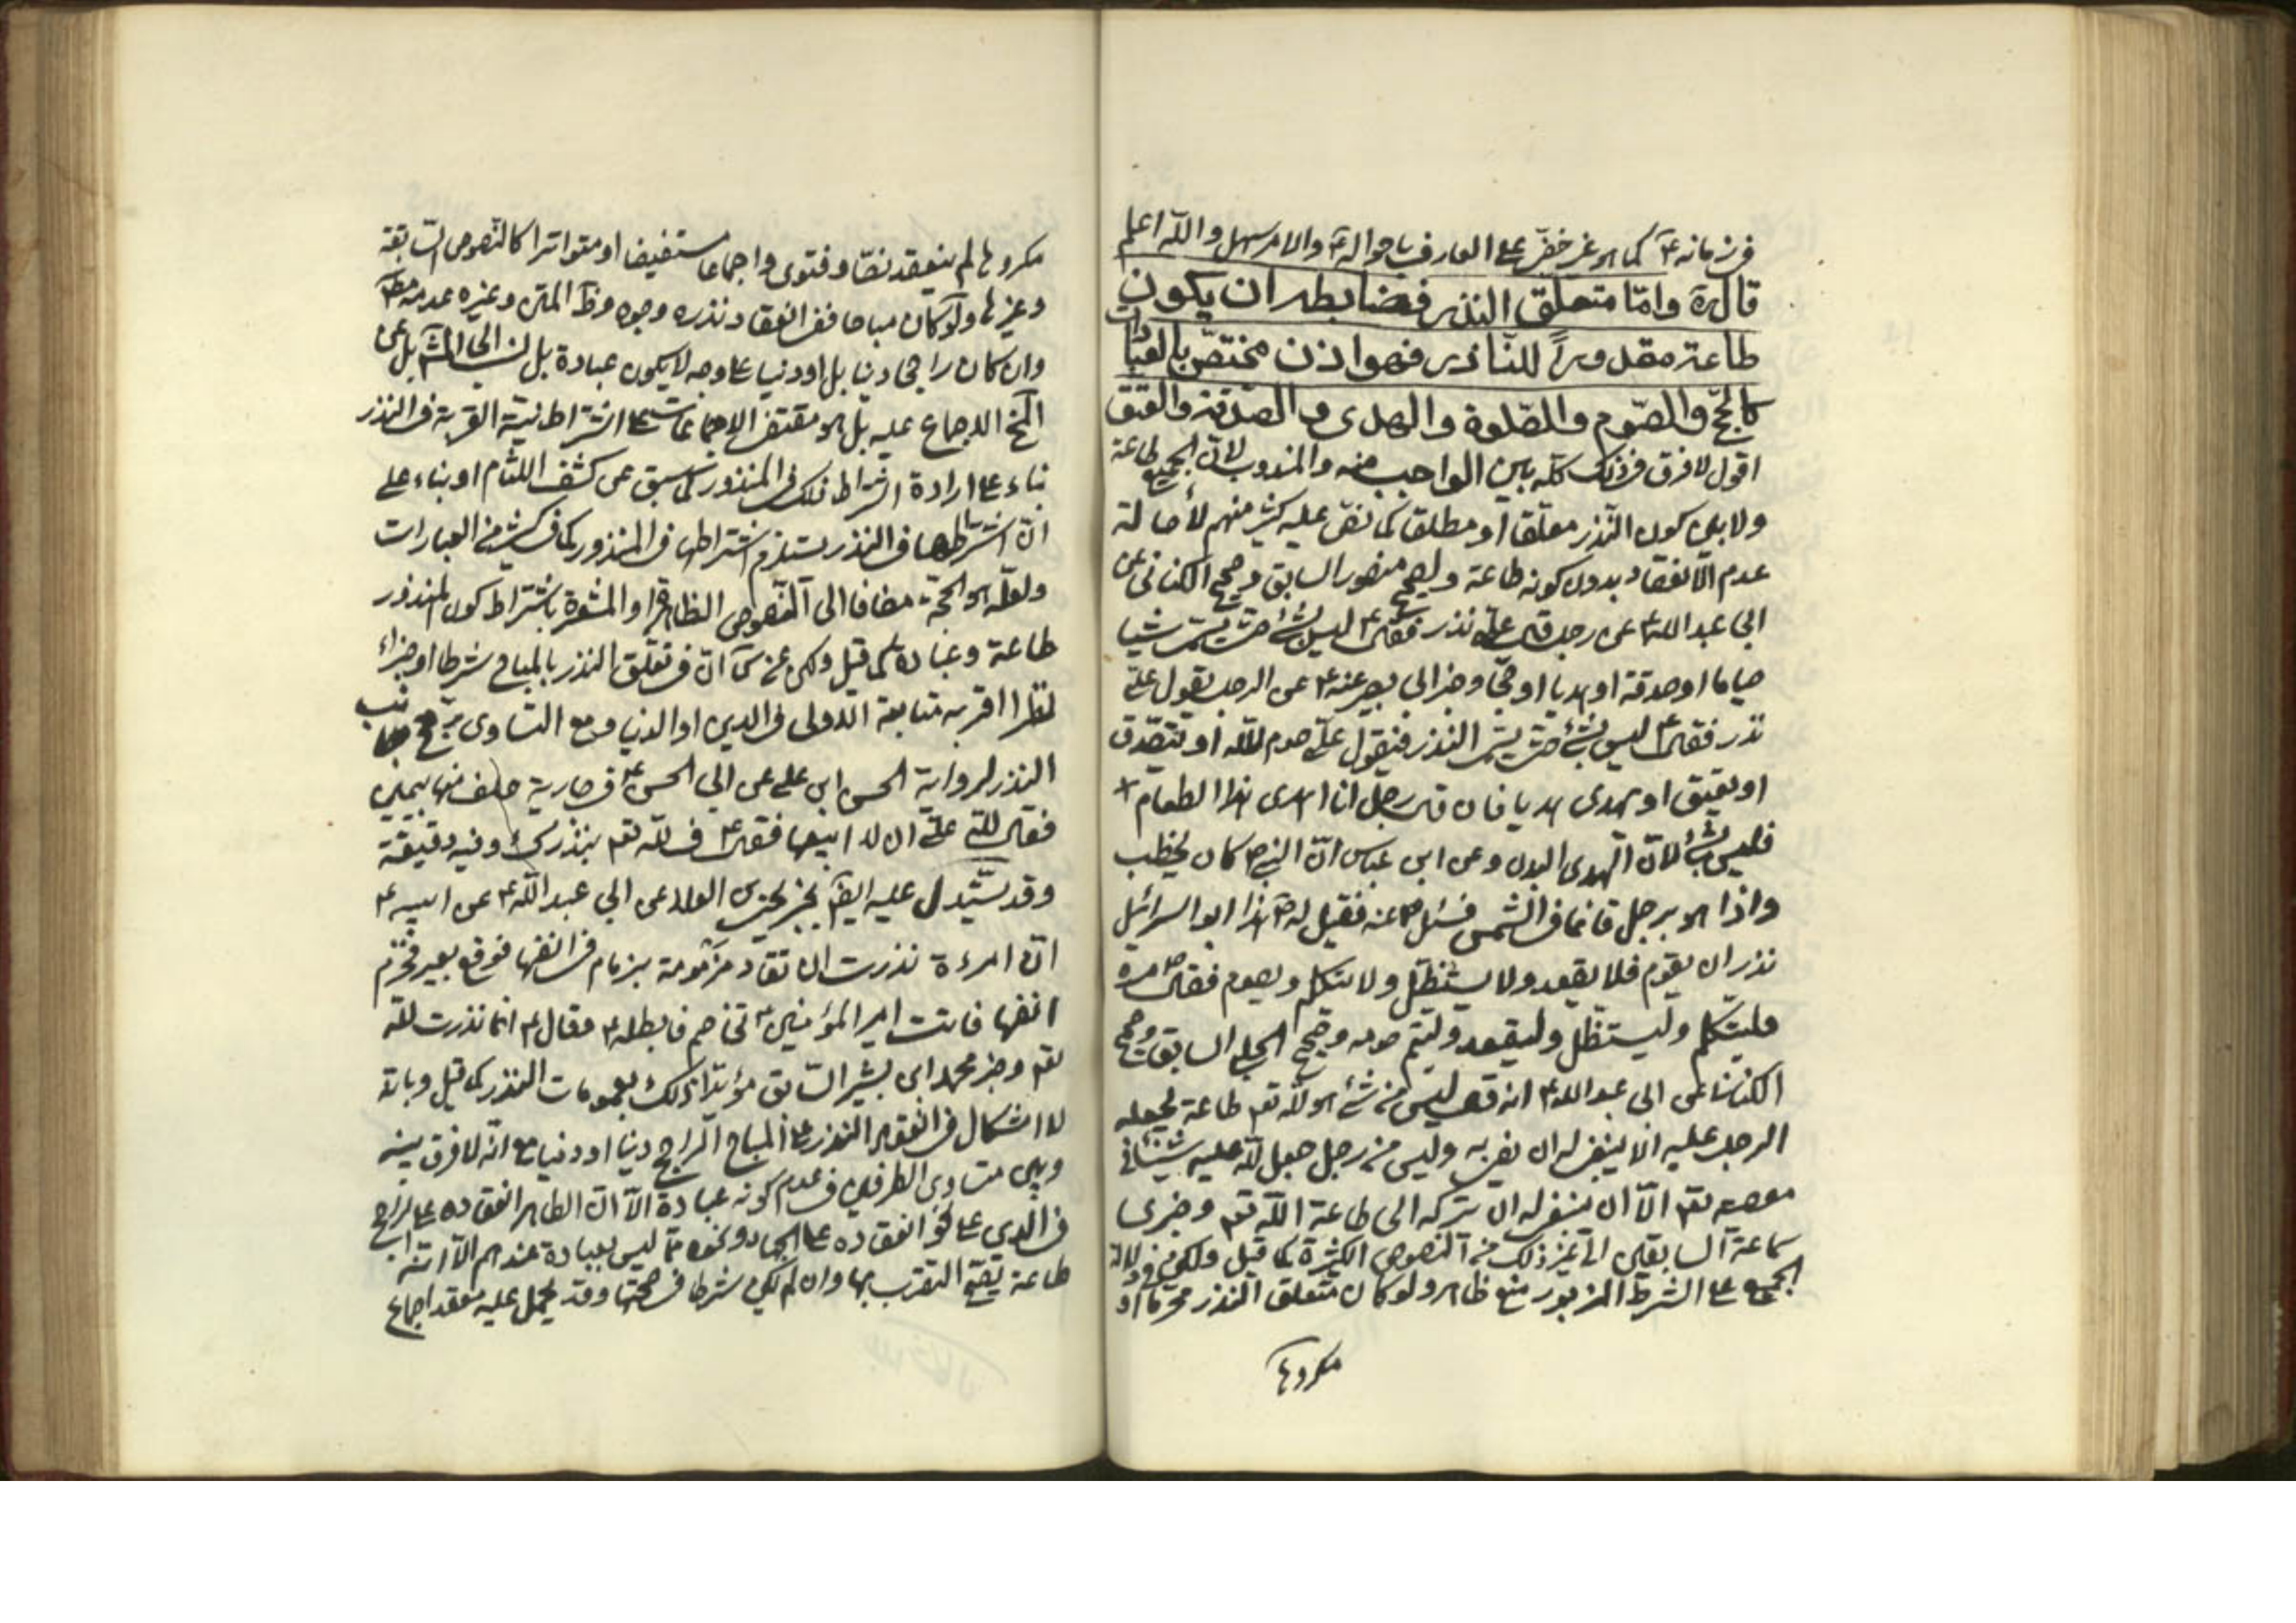 في زمانه ع كما هو غير خفي على العارف باحواله ع والامر سهل والله اعلم
قال ره وامّا متعلق النذر فضابطه ان يكون
طاعة مقدوراً للنّاذر فهو اذن مختصّ بالعبادات
كالحجّ والصّوم والصّلوة والهدى والصّدقة والعتق
اقول لا فرق في ذلك كله بين الواجب منه والمندوب لانّ الجميع طاعة
ولا بين كون النّذر معلّقا او مطلقا كما نصّ عليه كثير منهم لأصالة
عدم الانعقاد بدون كونه طاعة ولصحيح منصور السابق وصحيح الكناني عن
ابي عبد الله ع عن رجل قال علىّ نذر فقال ع ليس بشئ حتى يسمى شيئا
صياما او صدقة او هديا او حجّا وخبر ابي بصير عنه ع عن الرجل يقول علىّ
نذر فقال ع ليس بشئ حتى يسمى النذر فيقول علىّ صوم لله او يتصّدق
او يعتق او يهدى هديا فان قال رجل انا اهدى هذا الطعام
فليس بشئ لانّ الهدى البدن وعن ابن عباس انّ النبي ص كان يخطب
واذا هو برجل قائما في الشمس فسئل ص عنه فقيل له هذا ابو اسرائيل
نذر ان يقوم فلا يقعد ولا يستظلّ ولا يتكلم ويصوم فقال ص مره
فليتكلم وليستظلّ وليقعد وليتم صومه وصحيح الحلبي السابق وصحيح
الكناني عن ابي عبد الله ع انه قال ليس من شئ هو لله تعم طاعة يجعله
الرجل عليه الا ينبغي له ان يفي به وليس من رجل جعل لله عليه شيئا في
معصيه تعم الّا ان ينبغي له ان يتركه الى طاعة الله تعم وخبرى
سماعة السابقين الى غير ذلك من النصوص الكثيرة كما قيل ولكن في دلالة
الجميع على الشرط المزبور منع ظاهر ولو كان متعلق النذر محرما او
مكروها
مكروها لم ينعقد نصّا وفتوى واجماعا مستفيضا او متواترا كالنّصوص السّابقة
وغيرها ولو كان مباحا ففي انعقاد نذره وجوه وظ المتن وغيره عدمه مط
وان كان راجحا دينا بل او دنيا على وجه لا يكون عبادة بل نسب الى المشهور بل عن
الاجماع عليه بل هو مقتضى الاجماعات على اشتراط نيّة القربة في النذر
بناء على ارادة اشتراط ذلك في المنذور كما سبق عن كشف اللثام او بناء على
انّ اشتراطها في النذر يستلزم اشتراطها في المنذور كما في كثير من العبارات
ولعلّه هو الحجّة مضافا الى النّصوص الظاهرة او المشعرة باشتراط كون المنذور
طاعة وعبادة كما قيل ولكن عن س انّ في تعلق النذر بالمباح شرطا او جزاء
نظرا اقربه متابعة الاولى في الدين او الدنيا ومع التساوى يرجح جانب
النذر لرواية الحسن ابن على عن ابي الحسن ع في جارية حلف منها بيمين
فقال لله علىّ ان لا ابيعها فقال ع ف لله تعم بنذرك وفيه دقيقة
وقد يستدل عليه ايضا بخبر يحيى بن العلا عن ابي عبد الله ع عن ابيه ع
انّ امرءة نذرت ان تقاد مزمومة بزمام في انفها فوقع بعير فخزم
انفها فاتت امير المؤمنين ع تخاصم فابطله ع وقال ع انما نذرت لله
تعم وخبر محمد ابن بشير السّابق مؤيّدا ذلك بعمومات النذر كما قيل وبانه
لا اشكال في انعقاد النذر على المباح الراجح دينا او دنيا مع انّه لا فرق بينه
وبين متساوى الطرفين في عدم كونه عبادة الّا انّ الظاهر انعقاده على الراجح
في الدين على نحو انعقاده على الجهاد ونحوه ممّا ليس بعبادة عندهم الّا انه
طاعة يصحّ التقرب بها وان لم يكن شرطا في صحتها وقد يحمل عليه معقد اجماع